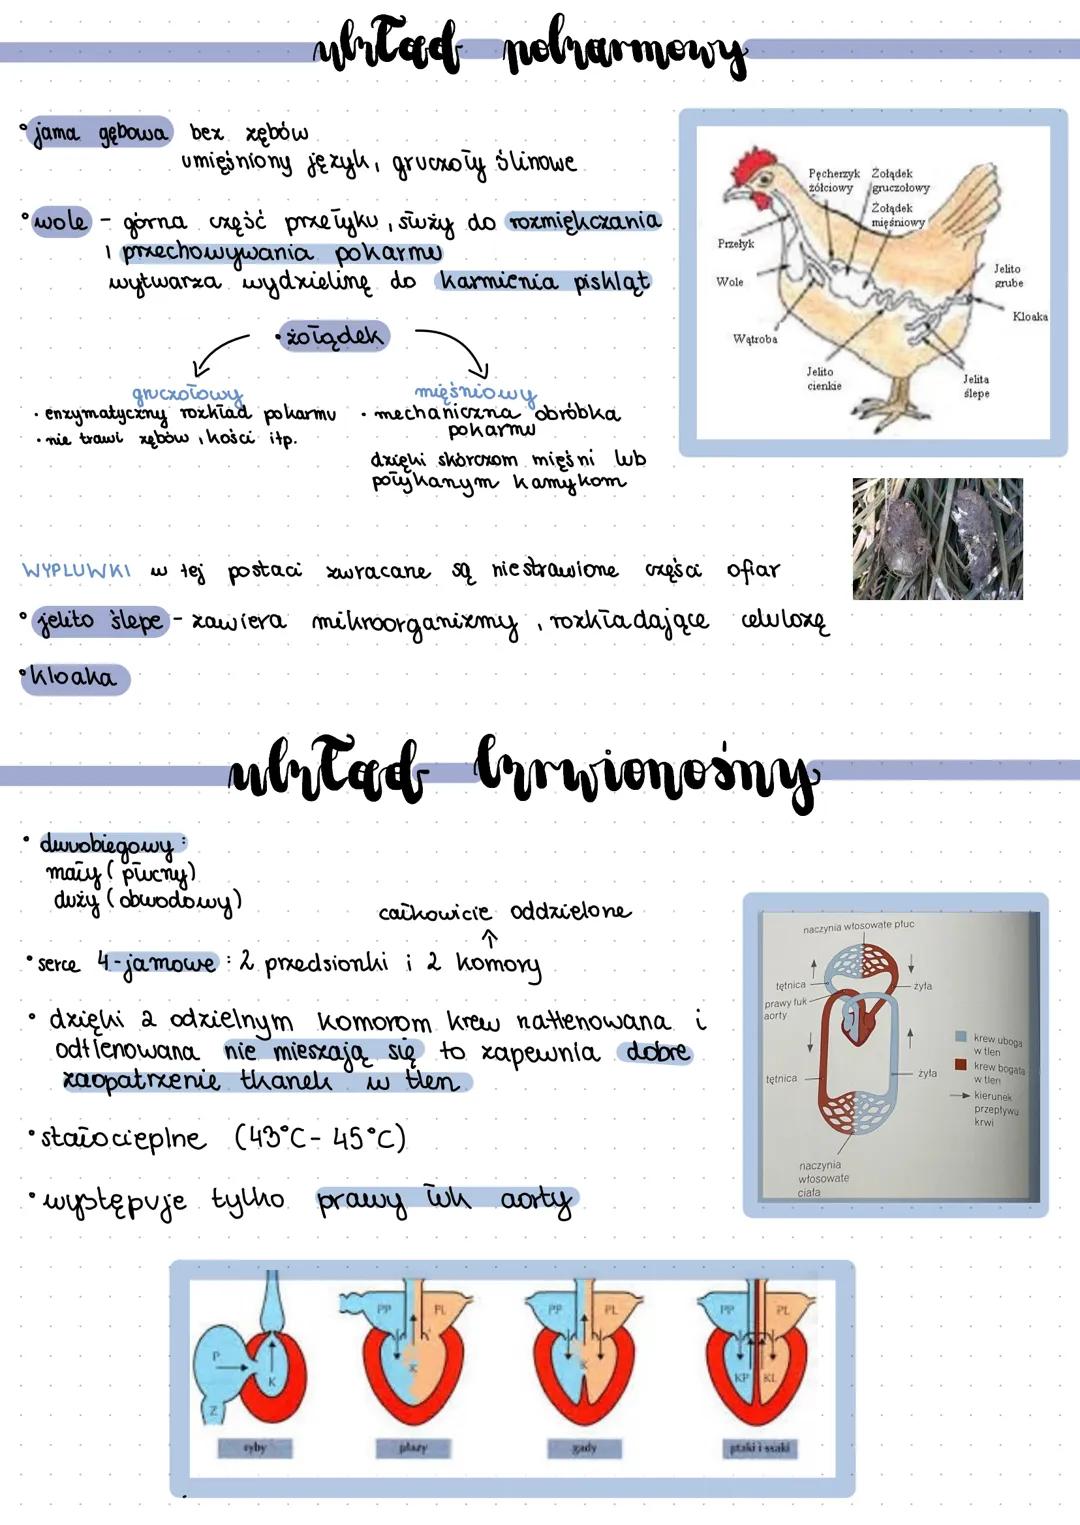 układ pokarmowy
°jama gębowa bez zębów
umięśniony język, gruczoły ślinowe
°wole - górna część przełyku, służy do rozmiękczania
i przechowywania pokarmu
wytwarza wydzielinę do karmienia piskląt
•żołądek
gruczołowy
• enzymatyczny rozkład pokarmu
• nie trawi zębów, kości itp.
mięśniowy
• mechaniczna obróbka
pokarmu
dzięki skórczom mięśni lub
połykanym kamykom
Pęcherzyk żółciowy
Żołądek gruczołowy
Żołądek mięśniowy
Przełyk
Wole
Wątroba
Jelito cienkie
Jelito grube
Kloaka
Jelita ślepe
WYPLUWKI w tej postaci zwracane są niestrawione części ofiar
°jelito ślepe - zawiera mikroorganizmy, rozkładające celulozę
°kloaka
układ krwionośny
• dwuobiegowy:
mały (płucny)
duży (obwodowy)
całkowicie oddzielone
°serce 4-jamowe : 2 przedsionki i 2 komory
• dzięki 2 odzielnym komorom krew natlenowana i
odtlenowana nie mieszają się to zapewnia dobre
zaopatrzenie tkanek w tlen
•stałocieplne (43°C - 45°C)
•występuje tylko prawy łuk aorty
naczynia włosowate płuc
tętnica
żyła
prawy łuk
aorty
tętnica
żyła
krew uboga
w tlen
krew bogata
w tlen
kierunek
przepływu
krwi
naczynia
włosowate
ciała
P
K
Z
ryby
PP
PL
K
płazy
PP
PL
K
gady
PP
PL
KP
KL
ptaki i ssaki